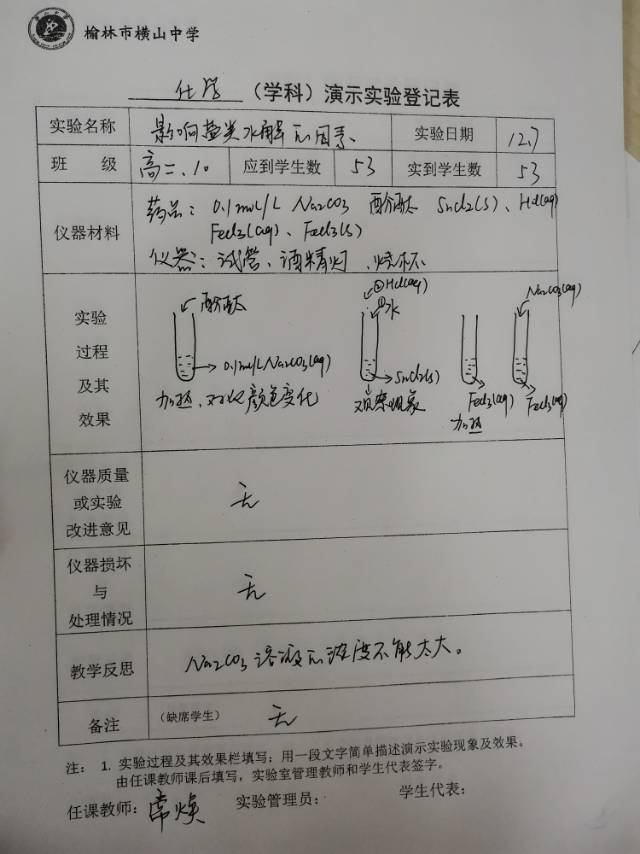 榆林市横山中学
化学（学科）演示实验登记表
实验名称 影响盐类水解的因素、 实验日期 12.7
班 级 高二、10 应到学生数 53 实到学生数 53
仪器材料
药品：0.1mol/L Na2CO3 酚酞 SnCl2(s)、HCl(aq)
FeCl3(aq)、FeCl3(s)
仪器：试管、酒精灯、烧杯
实验
过程
及其
效果
酚酞
②HCl(aq)
①水
Na2CO3(aq)
0.1mol/L Na2CO3(aq)
SnCl2(s)
FeCl3(aq)
FeCl3(aq)
加热、对比颜色变化
观察现象
加热
仪器质量
或实验
改进意见
无
仪器损坏
与
处理情况
无
教学反思 Na2CO3溶液的浓度不能太大。
备注 （缺席学生） 无
注： 1. 实验过程及其效果栏填写：用一段文字简单描述演示实验现象及效果。
由任课教师课后填写，实验室管理教师和学生代表签字。
任课教师：常焕 实验管理员： 学生代表：